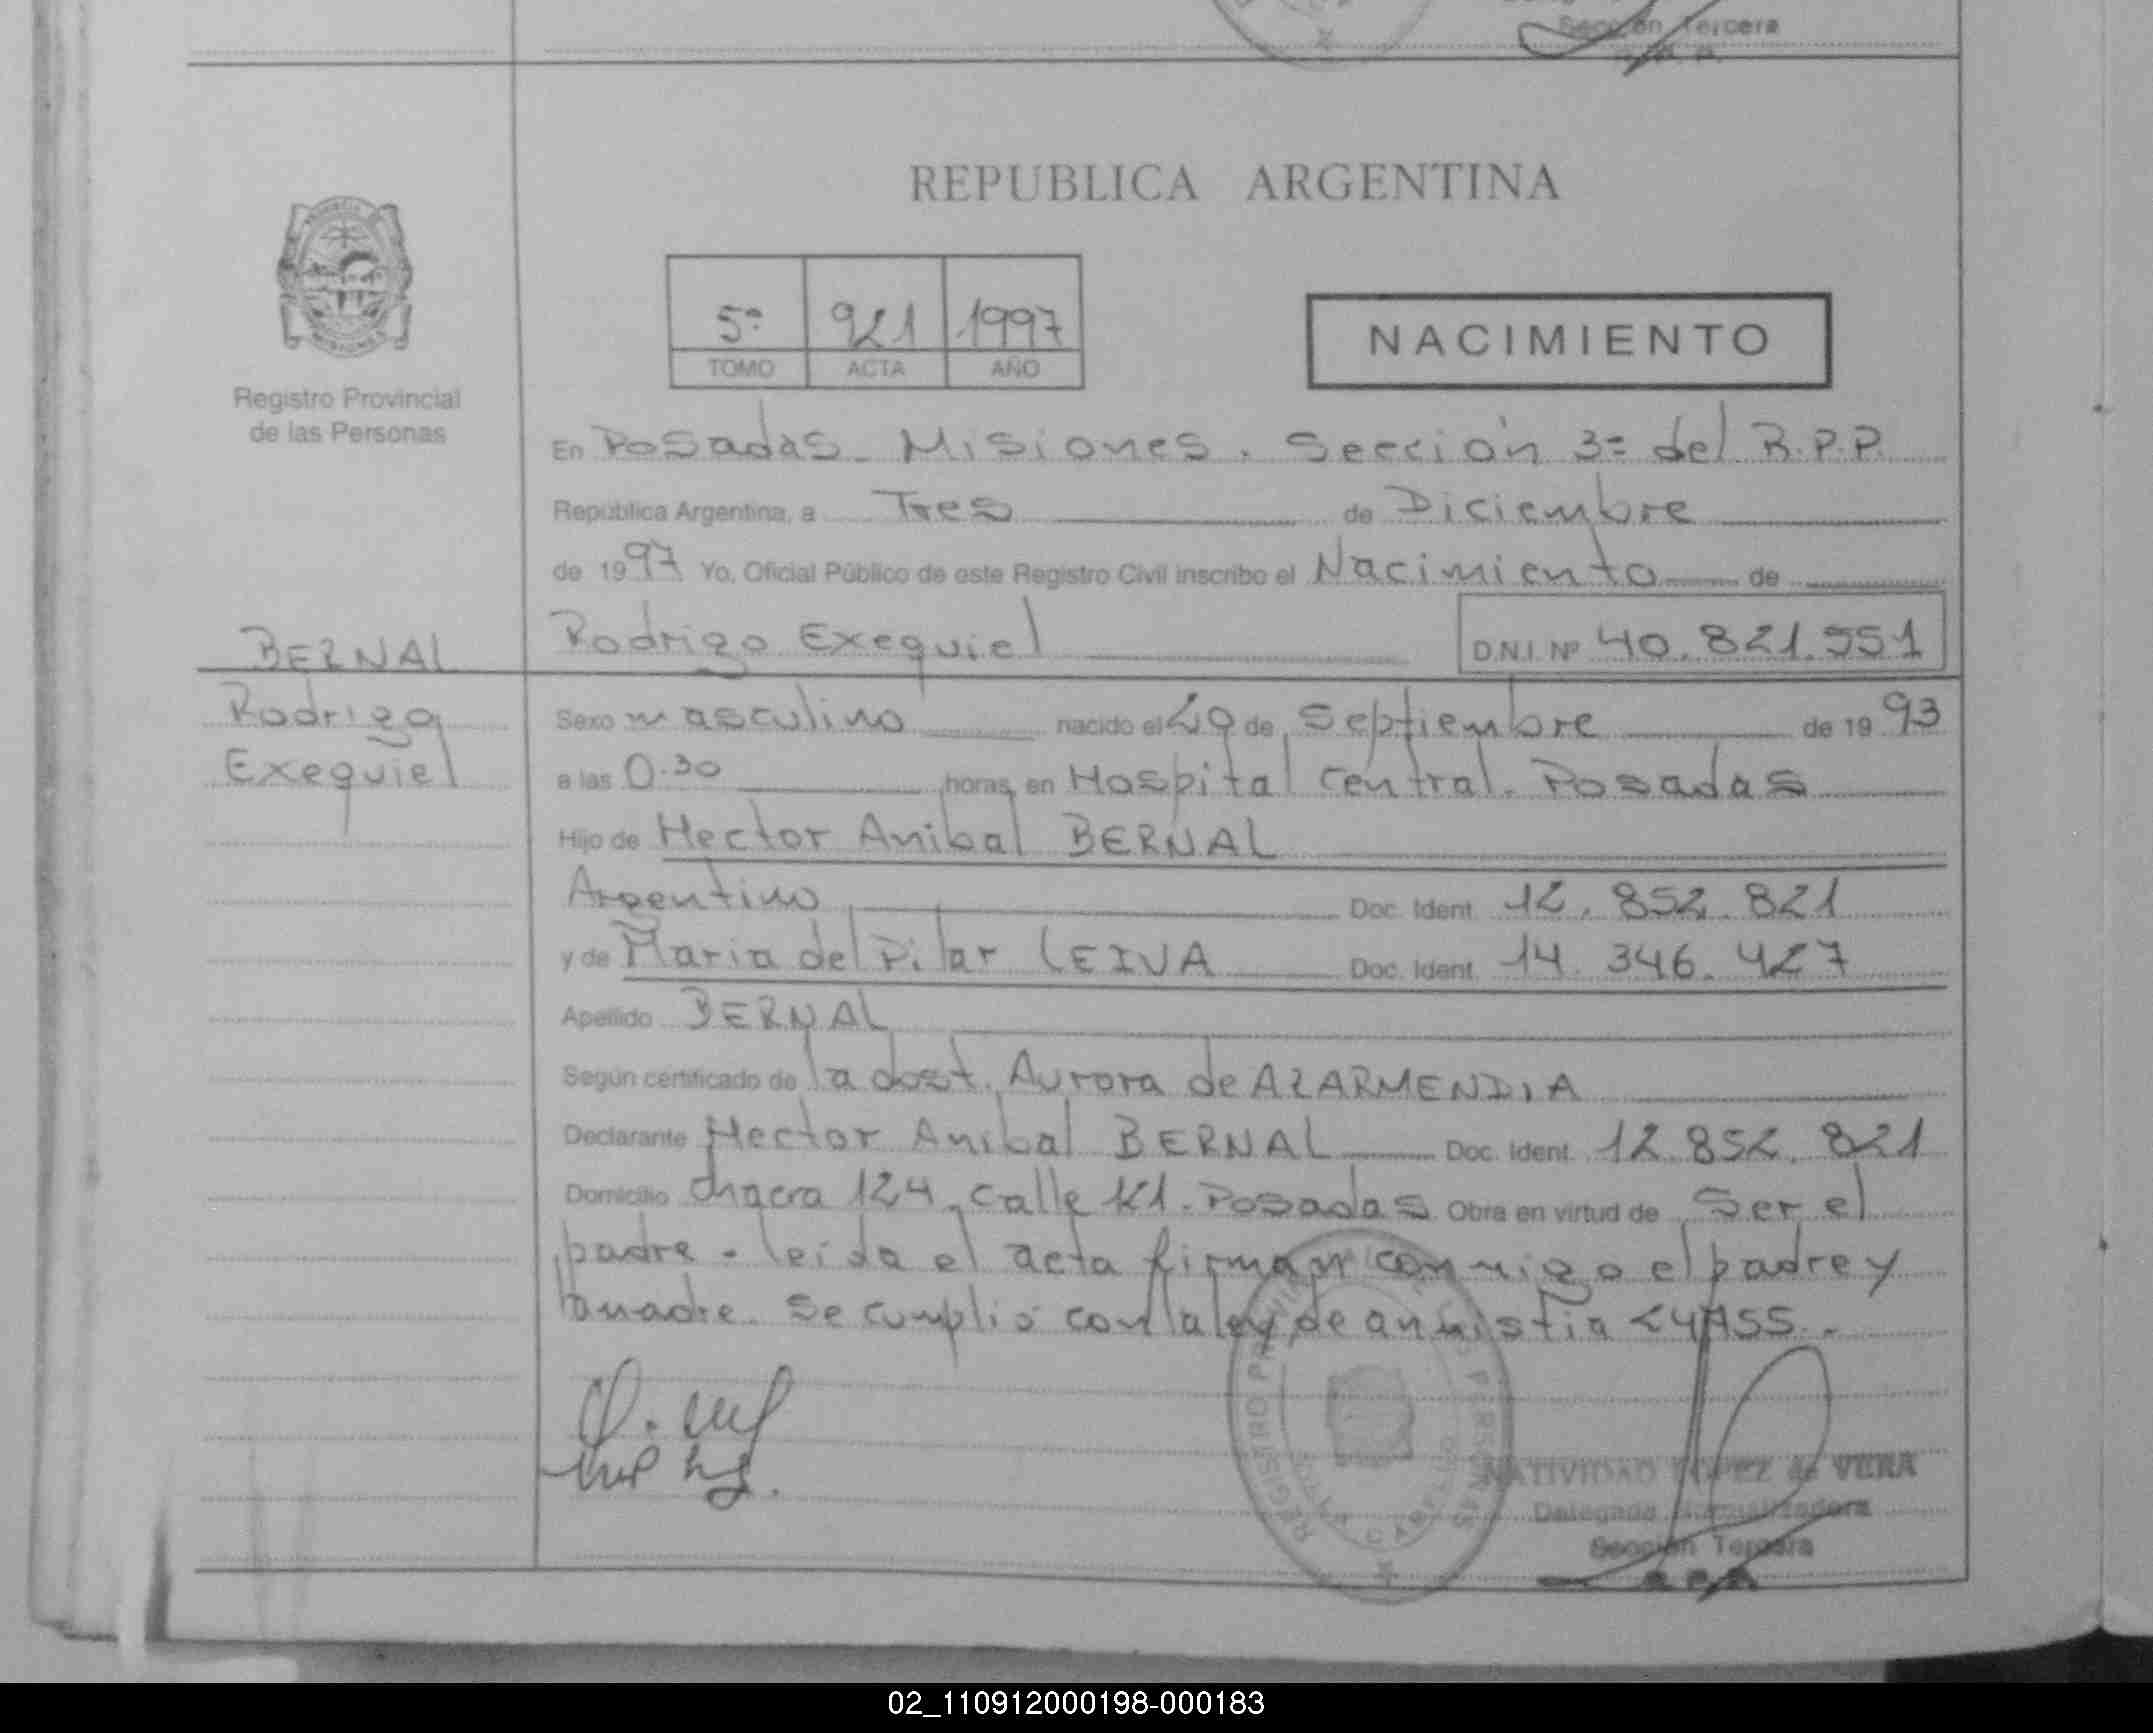 Sección Tercera
REPUBLICA ARGENTINA
5º 921 1997
TOMO ACTA AÑO
NACIMIENTO
Registro Provincial
de las Personas
En Posadas - Misiones. Sección 3º del R.P.P.
República Argentina, a Tres de Diciembre
de 1997 Yo, Oficial Público de este Registro Civil inscribo el Nacimiento de
BERNAL
Rodrigo Exequiel
Rodrigo Exequiel D.N.I. Nº 40.821.551
Sexo masculino nacido el 29 de Septiembre de 1993
a las 0.30 horas, en Hospital Central. Posadas
Hijo de Hector Anibal BERNAL
Argentino Doc. Ident. 12.852.821
y de Maria del Pilar LEIVA Doc. Ident. 14.346.427
Apellido BERNAL
Según certificado de la dost. Aurora de AZARMENDIA
Declarante Hector Anibal BERNAL Doc. Ident. 12.852.821
Domicilio Chacra 124, calle K1. Posadas Obra en virtud de Ser el
padre - leída el acta firman conmigo el padre y
madre. Se cumplió con la ley de amnistia 24755.-
REGISTRO PERSONAS
NATIVIDAD LOPEZ de VERA
Delegada Normalizadora
Sección Tercera
02_110912000198-000183